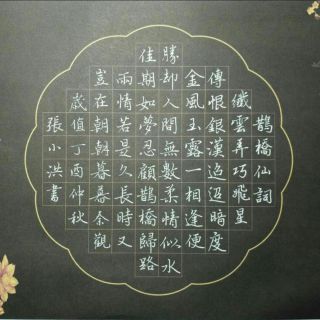 鵲橋仙詞
纖雲弄巧飛星
傳恨銀漢迢迢暗度
金風玉露一相逢便
勝却人間無數柔情似水
佳期如夢忍顧鵲橋歸路
兩情若是久長時又
豈在朝朝暮暮秦觀
歲值丁酉仲秋
張小洪書